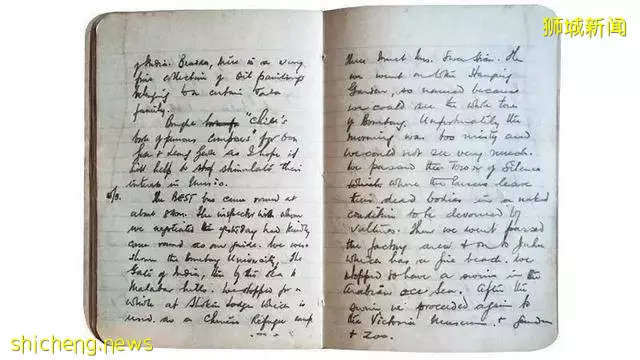 狮城新闻
of India. Besides, there is a very
fine collection of Oil paintings
belonging to a certain Tata
family.
Bought "Child's
book of famous Composers" for
& as I hope it
will help to stimulate their
interest in Music.
The BEST bus came round at
about 8am. The inspector with whom
we negotiated the yesterday had kindly
came round as our guide. We were
shown the Bombay University, The
Gate of India, the by the sea to
Malabar hills. We stopped for a
while at Lodge which is
used as a Chinese Refugee camp
there meet Mrs. Swa Sian. Then
we went on to the Hanging
Garden, so named because
we could see the whole town
of Bombay. Unfortunately the
morning was too misty and
we could not see very much.
We passed the Tower of Silence
where the Parsees leave
their dead bodies in a naked
condition to be devoured by
vultures. Then we went passed
the factory area & on to Juhu
which has a fine beach. We
stopped to have a swim in the
Arabian Sea. After the
swim we proceeded again to
the Victoria Museum & Garden
& Zoo.
shicheng.news